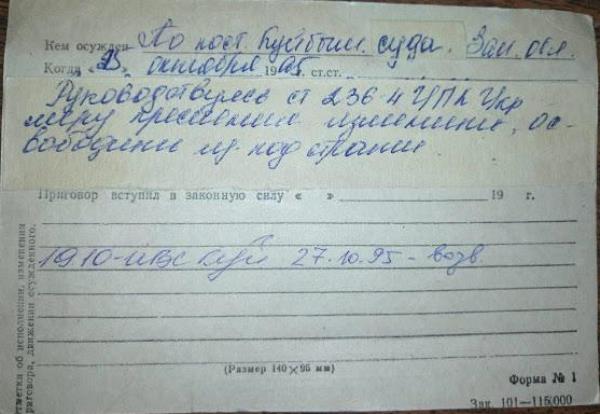 Кем осужден По пост. Куйбыш. суда. Зап. обл.
Когда «25» октября 1995 г. ст.ст.
Руководствуясь ст 236-4 УПК Укр
меру пресечения изменить, ос-
вободить из под стражи.
Приговор вступил в законную силу « » 19 г.
19.10-ИВС Куй 27.10.95 - возв.
(Размер 140×95 мм)
Форма № 1
Зак. 101—115000
отметки об исполнении, изменении
приговора, движении осужденного.